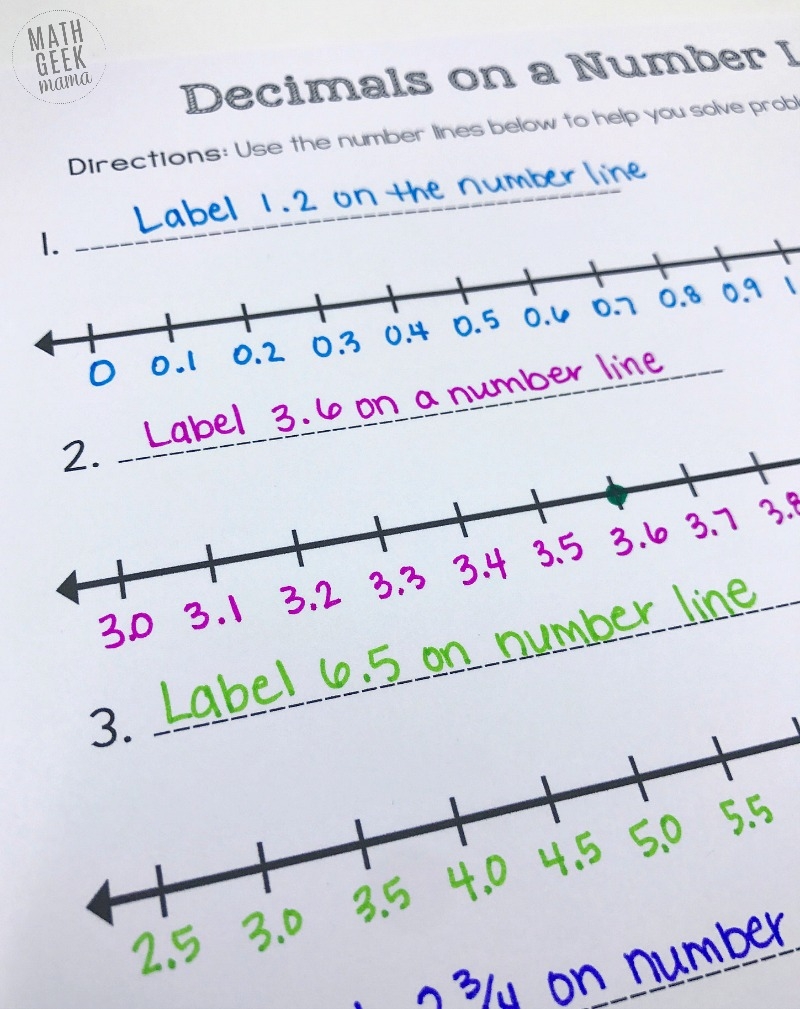 MATH
GEEK
mama
Decimals on a Number
Directions: Use the number lines below to help you solve
1. Label 1.2 on the number line
0 0.1 0.2 0.3 0.4 0.5 0.6 0.7 0.8 0.9 1
2. Label 3.6 on a number line
3.0 3.1 3.2 3.3 3.4 3.5 3.6 3.7 3.8
3. Label 6.5 on number line
2.5 3.0 3.5 4.0 4.5 5.0 5.5
2 3/4 on number